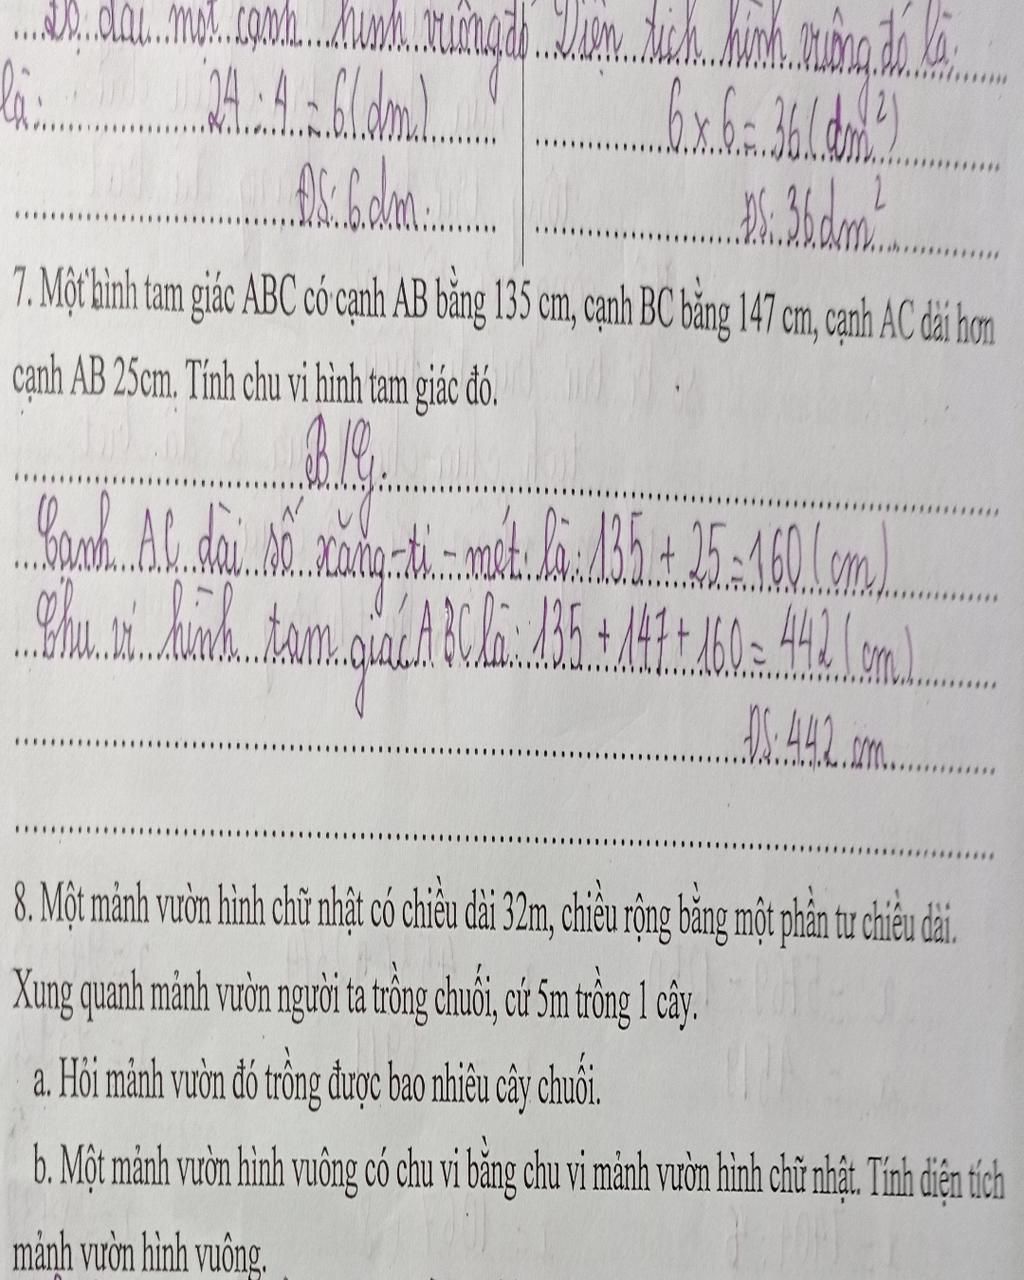 Độ dài một cạnh hình vuông đó Diện tích hình vuông đó là:
là: 24 : 4 = 6 (dm) 6 x 6 = 36 (dm²)
ĐS: 6 dm. ĐS: 36 dm²
7. Một hình tam giác ABC có cạnh AB bằng 135 cm, cạnh BC bằng 147 cm, cạnh AC dài hơn
cạnh AB 25cm. Tính chu vi hình tam giác đó.
B/G.
Cạnh AC dài số xăng-ti-mét là: 135 + 25 = 160 (cm)
Chu vi hình tam giác ABC là: 135 + 147 + 160 = 442 (cm)
ĐS: 442 cm
8. Một mảnh vườn hình chữ nhật có chiều dài 32m, chiều rộng bằng một phần tư chiều dài.
Xung quanh mảnh vườn người ta trồng chuối, cứ 5m trồng 1 cây.
a. Hỏi mảnh vườn đó trồng được bao nhiêu cây chuối.
b. Một mảnh vườn hình vuông có chu vi bằng chu vi mảnh vườn hình chữ nhật. Tính diện tích
mảnh vườn hình vuông.